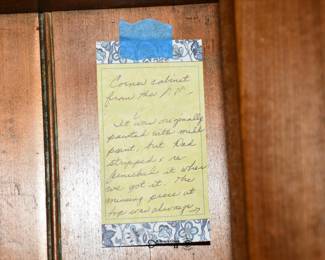 Corner cabinet
from the
It was originally
painted with milk
paint, but Dad
stripped & re-
finished it when
we got it. The
missing piece at
top was always